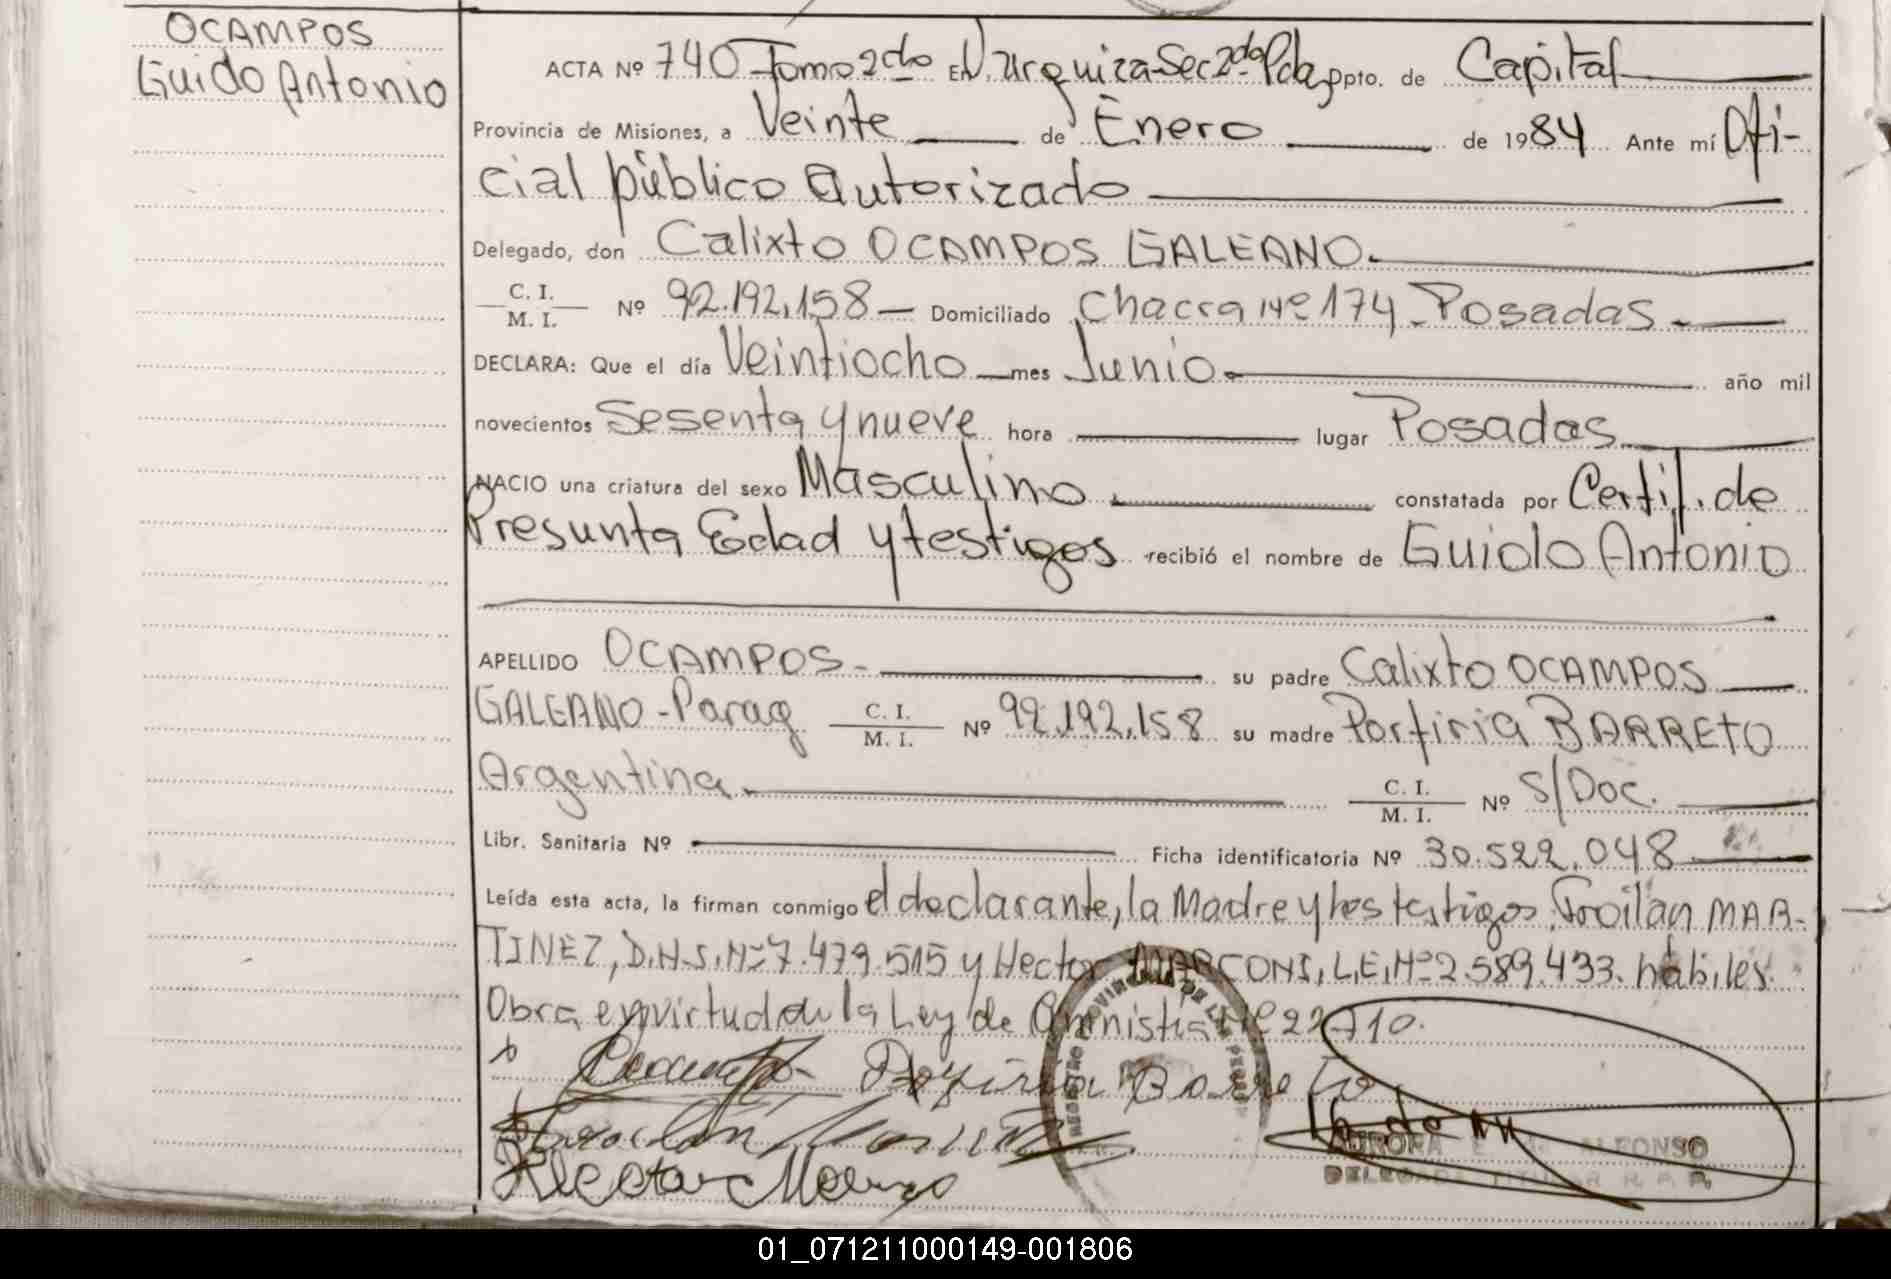 OCAMPOS
Guido Antonio
ACTA Nº 740 Tomo 2do En V. Urquiza Sec 2da Pdas Dpto. de Capital
Provincia de Misiones, a Veinte de Enero de 1984 Ante mí Ofi-
cial público Autorizado
Delegado, don Calixto OCAMPOS GALEANO.
C. I.
M. I. Nº 92.192.158 - Domiciliado Chacra Nº 174 - Posadas -
DECLARA: Que el día Veintiocho mes Junio año mil
novecientos Sesenta y nueve hora lugar Posadas
NACIO una criatura del sexo Masculino constatada por Certif. de
Presunta Edad y testigos recibió el nombre de Guido Antonio
APELLIDO OCAMPOS - su padre Calixto OCAMPOS
GALEANO - Parag C. I.
M. I. Nº 92.192.158 su madre Porfiria BARRETO
Argentina C. I.
M. I. Nº S/Doc.
Libr. Sanitaria Nº Ficha identificatoria Nº 30.522.048
Leída esta acta, la firman conmigo el declarante, la Madre y los testigos Froilan MAR-
TINEZ, D.N.I. Nº 7.479.515 y Hector MARCONI, L.E. Nº 2.589.433. hábiles.
Obra en virtud de la Ley de Amnistia Nº 22.710.
Porfiria Barreto
Froilan
Hector
ALFONSO
DELEGADA TITULAR R. P. P.
01_071211000149-001806